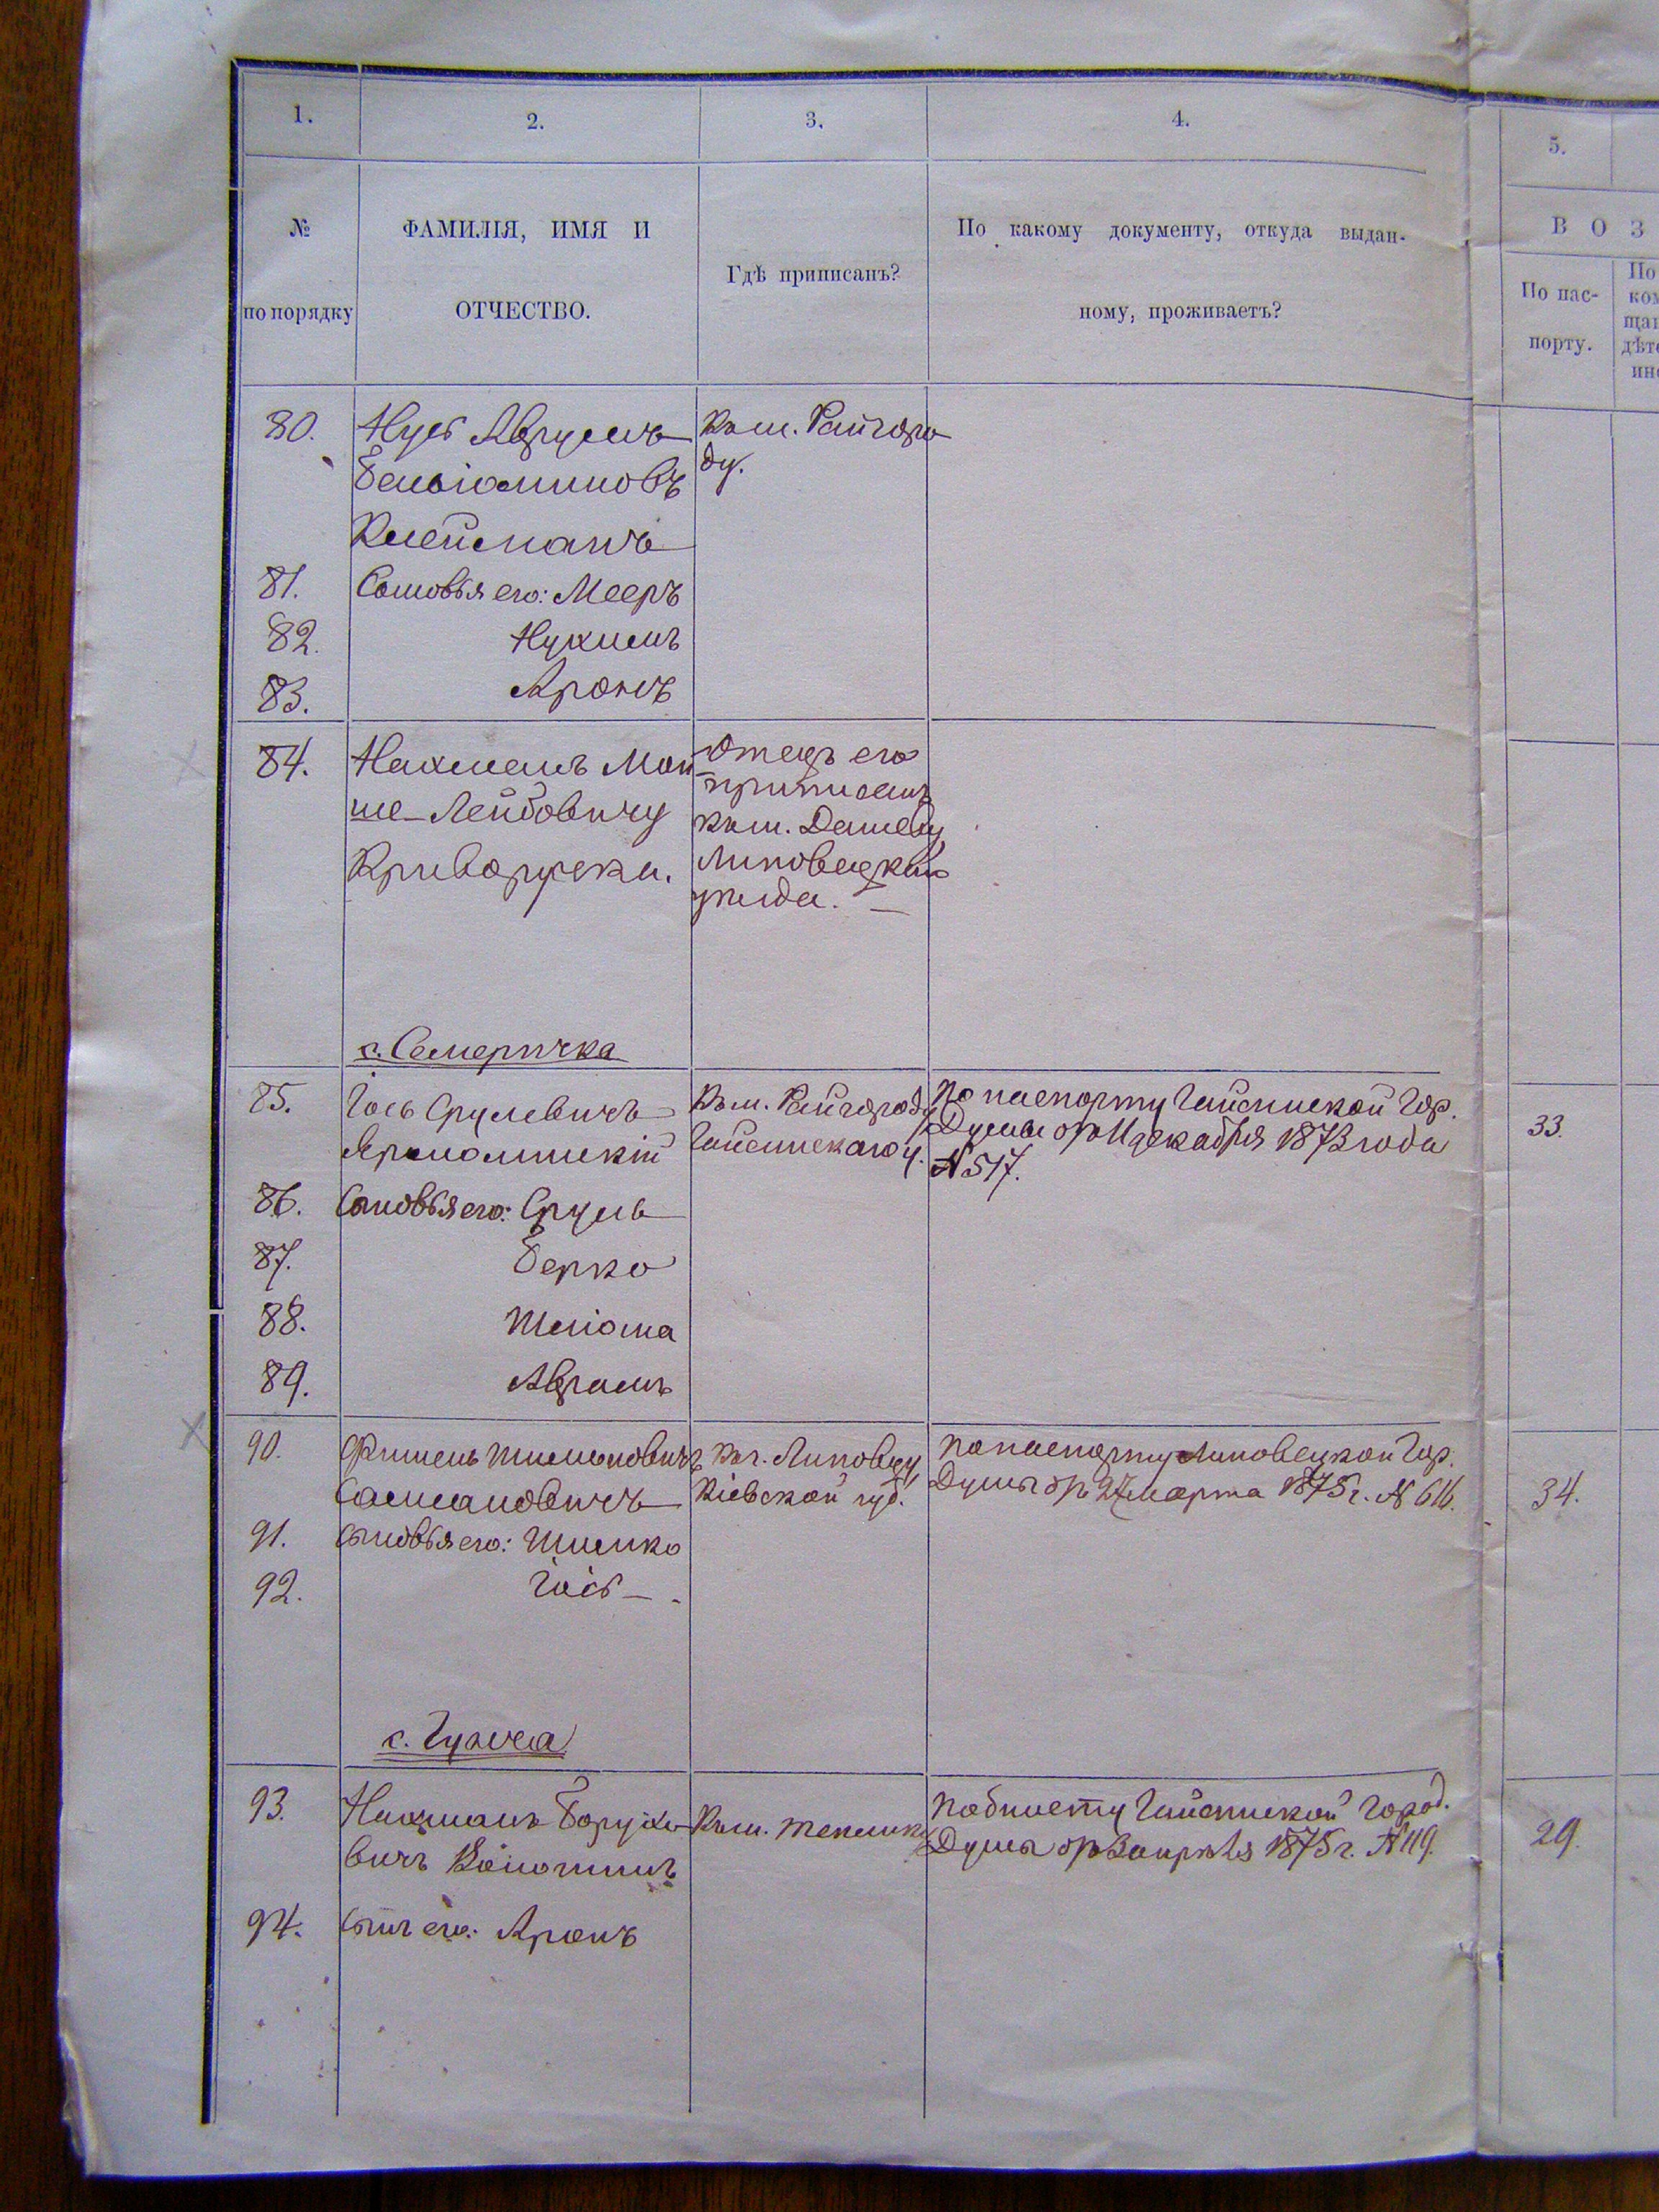 1.
2.
3.
4.
5.
№
по порядку
ФАМИЛІЯ, ИМЯ И
ОТЧЕСТВО.
Гдѣ приписанъ?
По какому документу, откуда выдан-
ному, проживаетъ?
В О З
По пас-
порту.
По
ком
щан
дѣт
ин
80.
Нусь Аврумъ
Беньіоминовъ
Клейманъ
Къ м. Райгоро
ду.
81. Сыновья его: Мееръ
82. Нухимъ
83. Аронъ
84.
Нахманъ Мой
ше-Лейбовичу
Криворука.
Отецъ его
приписанъ
къ м. Дашеву
Липовецкаго
уѣзда.
с. Семеричка
85.
Іось Срулевичъ
Ярмолинскій
Къ м. Райгороду
Гайсинскаго у.
По паспорту Гайсинской Гор.
Думы отъ 11 декабря 1873 года
№ 517.
33.
86. Сыновья его: Сруль
87. Берко
88. Шліома
89. Аврамъ
90.
Фишель Шимоновичъ
Сасмановичъ
Къ г. Липовцу
Кіевской губ.
По паспорту Липовецкой Гор.
Думы отъ 27 марта 1875 г. № 616.
34.
91. сыновья его: Шимко
92. Іось
с. Гунча
93.
Нахманъ Борухо-
вичъ
Къ м. Теплику
По билету Гайсинской Город.
Думы отъ 3 апрѣля 1875 г. № 119.
29.
94. сынъ его: Аронъ